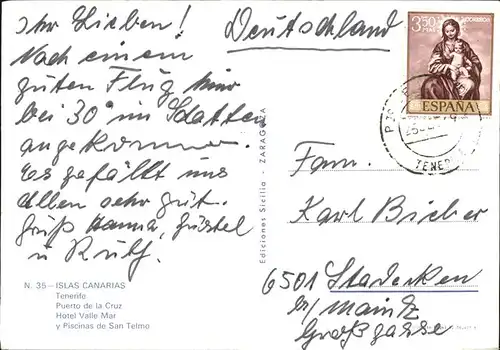 Ihr Lieben!
Nach einem
guten Flug hier
bei 30° im Schatten
angekommen.
Es gefällt uns
allen sehr gut.
Gruß Hanna,
u Rulf.
N. 35 — ISLAS CANARIAS
Tenerife
Puerto de la Cruz
Hotel Valle Mar
y Piscinas de San Telmo
Ediciones Sicilia - ZARAGOZA
Deutschland
3,50
PTAS
CORREOS
ESPAÑA
TENERIFE
Fam.
Karl Bieber
6501 Stadecken
b/ Mainz
Großgasse